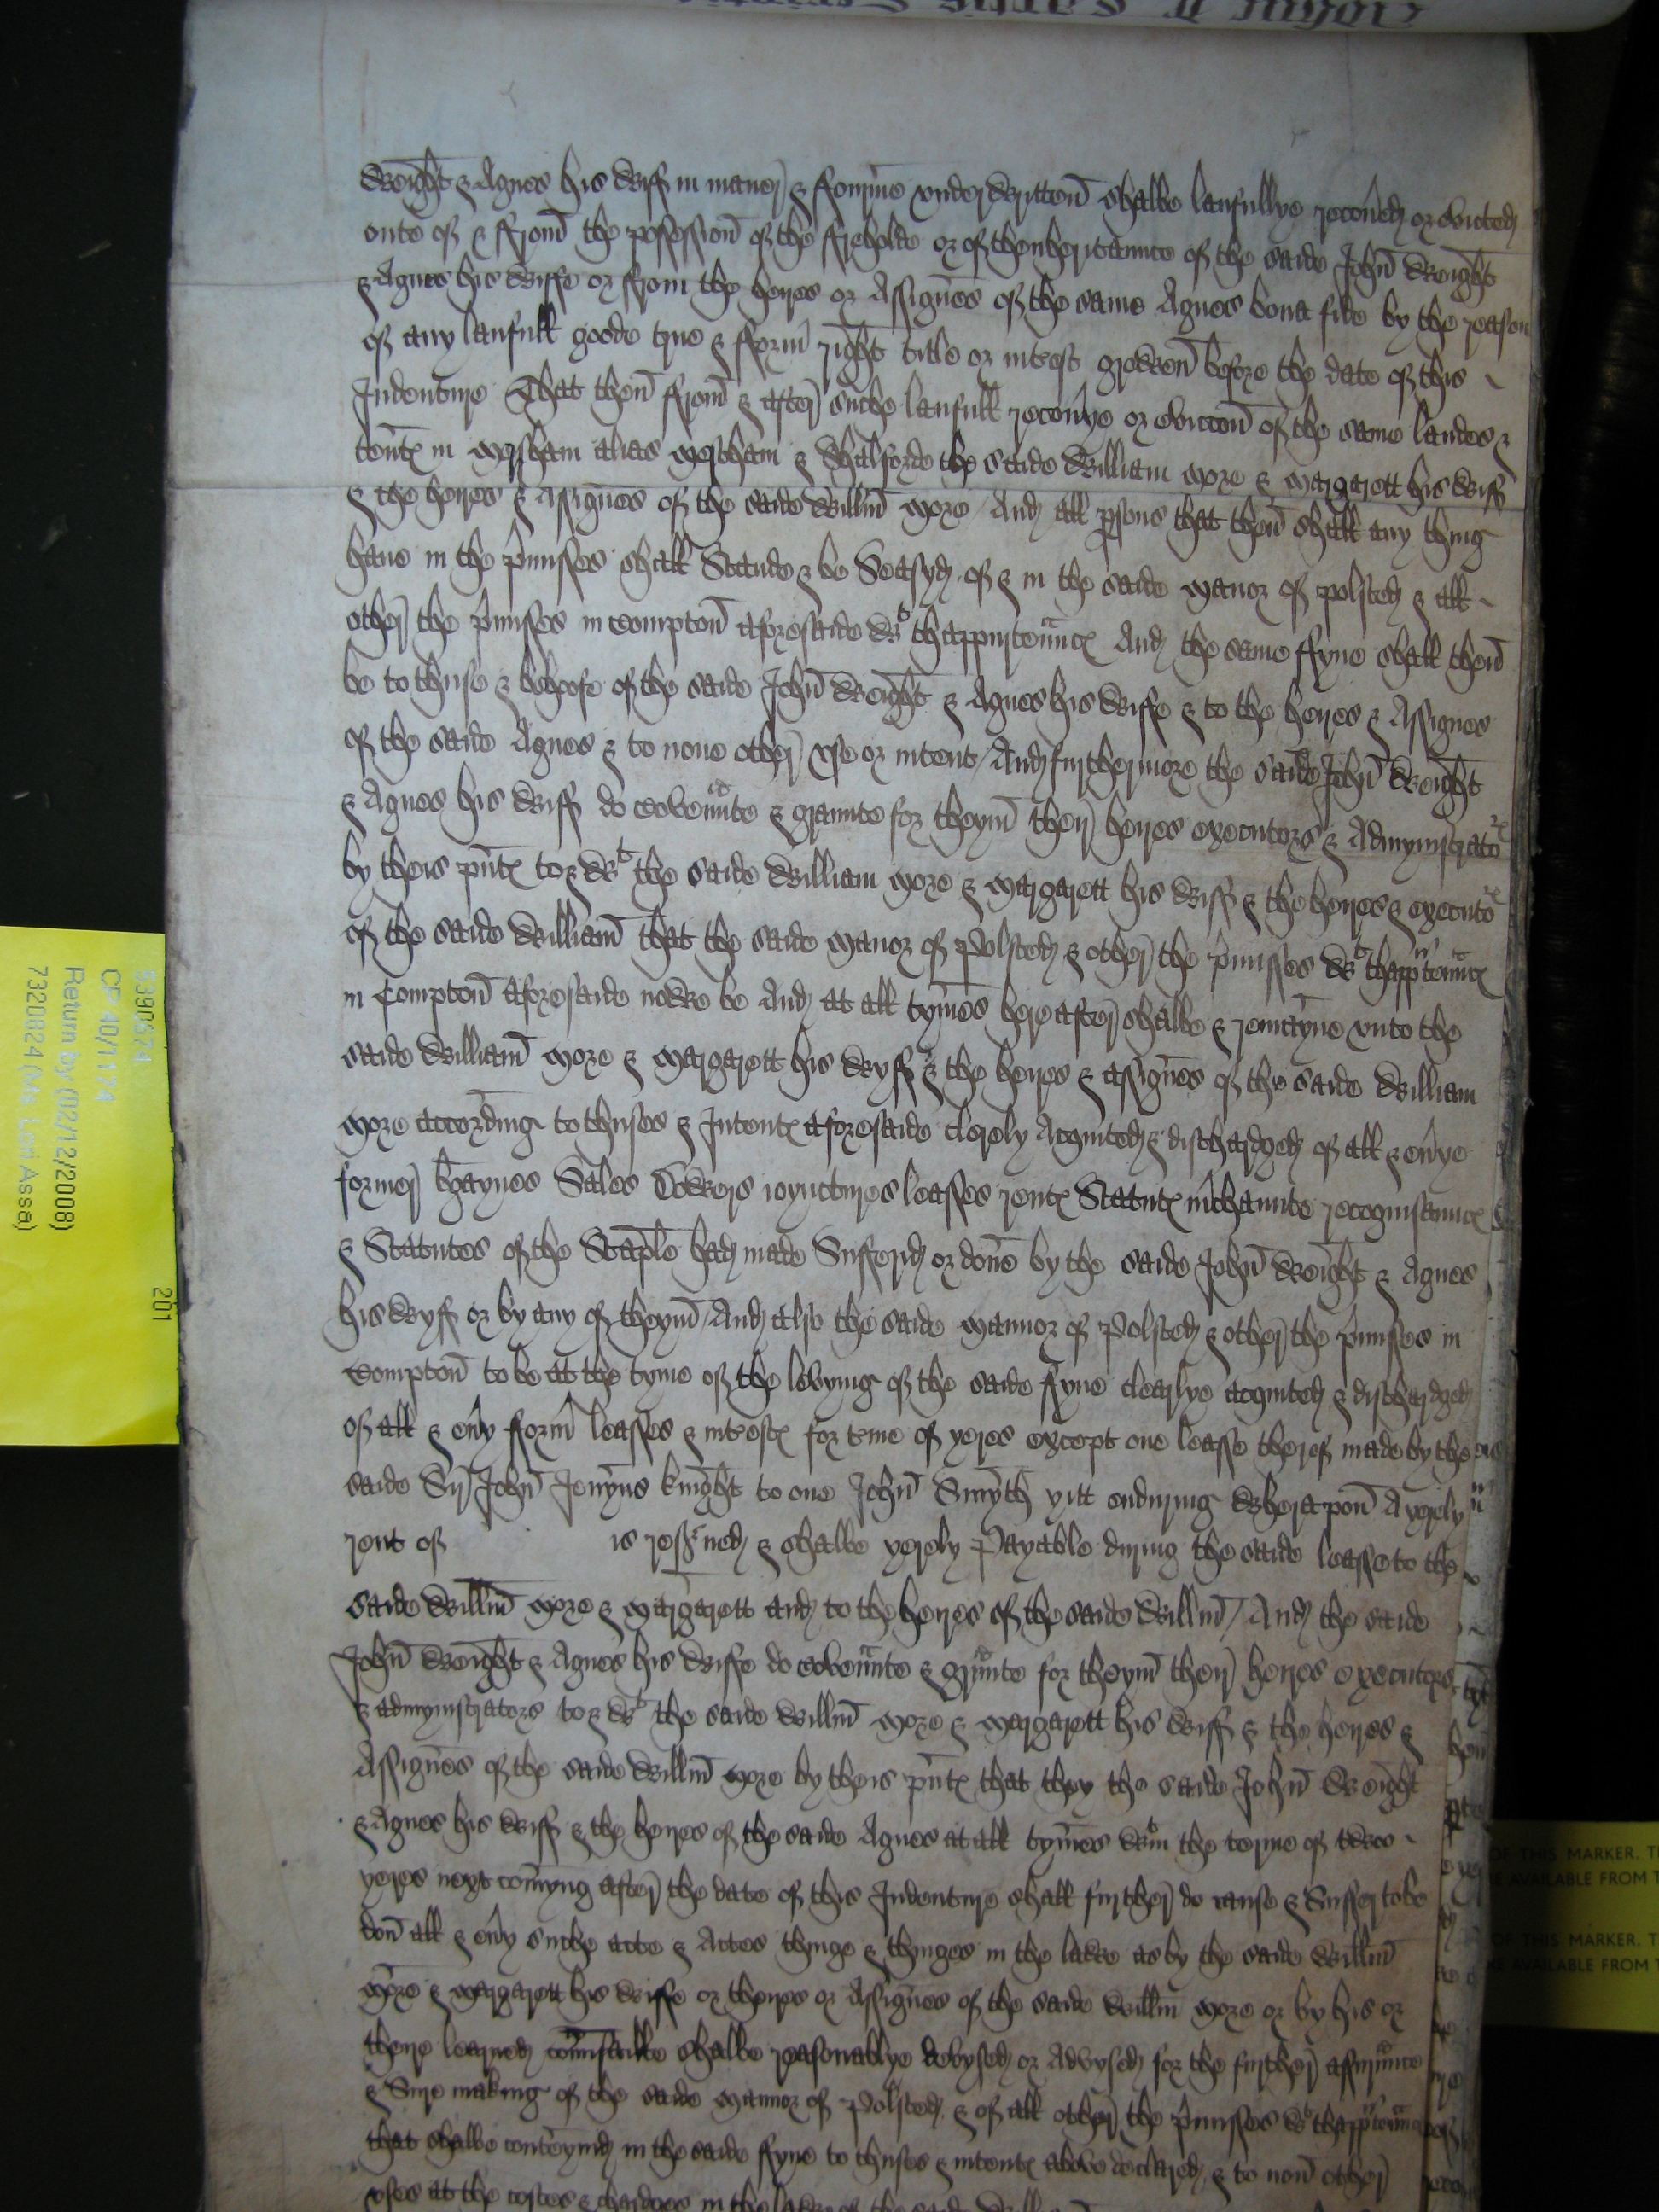 Wreight & Agnes his Wiff in maner & fforme underwritten shalbe laufullye recoverd or evicted
oute of & ffrom the possession of the ffreholde or of thenheritaunce of the saide John Wreight
& Agnes his Wiffe or ffrom the heyres or Assignes of the same Agnes bona fide by the reason
of any laufull goode true & fform right title or intest growen before the date of this
Indenture That then ffrom & after suche laufull recovye or evicton of the same landes &
tents in mersham alias merstham & Shalforde the saide William More & Margarett his Wiff
& the heyres & Assignes of the saide Willm More / And all psons that then shall any thing
haue in the pmisses shall Stande & be Seasyd of & in the saide Manor of Polsted & all
other the pmisses in Compton aforesaide wt thappurtenncs And the same ffyne shall then
be to thuse & behoofe of the saide John Wreight & Agnes his Wiffe & to the heyres & Assignes
of the saide Agnes & to none other use or intent / And furthermore the saide John Wreight
& Agnes his Wiff do Covennte & graunte for theym their heyres executors & Admynistrators
by theis pnts to & wt the saide William More & Margarett his Wiff & the heyres & executors
of the saide William that the saide Manor of Polsted & other the pmisses wt thapptenncs
in Compton aforesaide nowe be And at all tymes hereafter shalbe & remayne unto the
saide William More & Margarett his Wyff & the heyres & assignes of the saide William
More according to thuses & Intents aforesaide clerely Acquited & dischardged of all & evye
former bgaynes Sales Dowers ioynctures leasses rents Statuts mchaunte recognisauncs
& Statutes of the Staple had made Sufferid or done by the saide John Wreight & Agnes
his Wyff or by any of theym / And also the saide Mannor of Polsted & other the pmisses in
Compton to be at the tyme of the levying of the saide ffyne clearlye acquited & dischardged
of all & evy fform leasses & intests for tme of yeres except one leasse therof made by the
saide Sir John Jenyns knight to one John Smyth yitt enduring Wherapon A yerely
rent of is resved & shalbe yerely Payable during the saide leasse to the
saide Willm More & Margarett and to the heyres of the saide Willm / And the saide
John Wreight & Agnes his Wiffe do covennte & grunte for theym their heyres executors
& admynistrators to & wt the saide Willm More & Margarett his Wiff & the heyres &
Assignes of the saide Willm More by theis pnts that they the saide John Wreight
& Agnes his Wiff & the heyres of the saide Agnes at all tymes wtin the terme of twoo
yeres next comyng after the date of this Indenture shall further do cause & Suffer to be
don all & evy suche acte & Actes thinge & thinges in the lawe as by the saide Willm
More & Margarett his Wiffe or theyres or Assignes of the saide Willm More or by his or
theire learned counsaille shalbe reasonablye devysed or Advysed for the further assurunce
& Sure making of the saide Mannor of Polsted & of all other the pmisses wt thapptennces
that shalbe conteynid in the saide ffyne to thuses & intents above declared & to non other
uses at the costes & chardges in the lawe of the saide
5390574
CP 40/1174
Return by (02/12/2008)
7320824 (Ms Lori Assa)
201
OF THIS MARKER. T
E AVAILABLE FROM T
OF THIS MARKER. T
E AVAILABLE FROM T